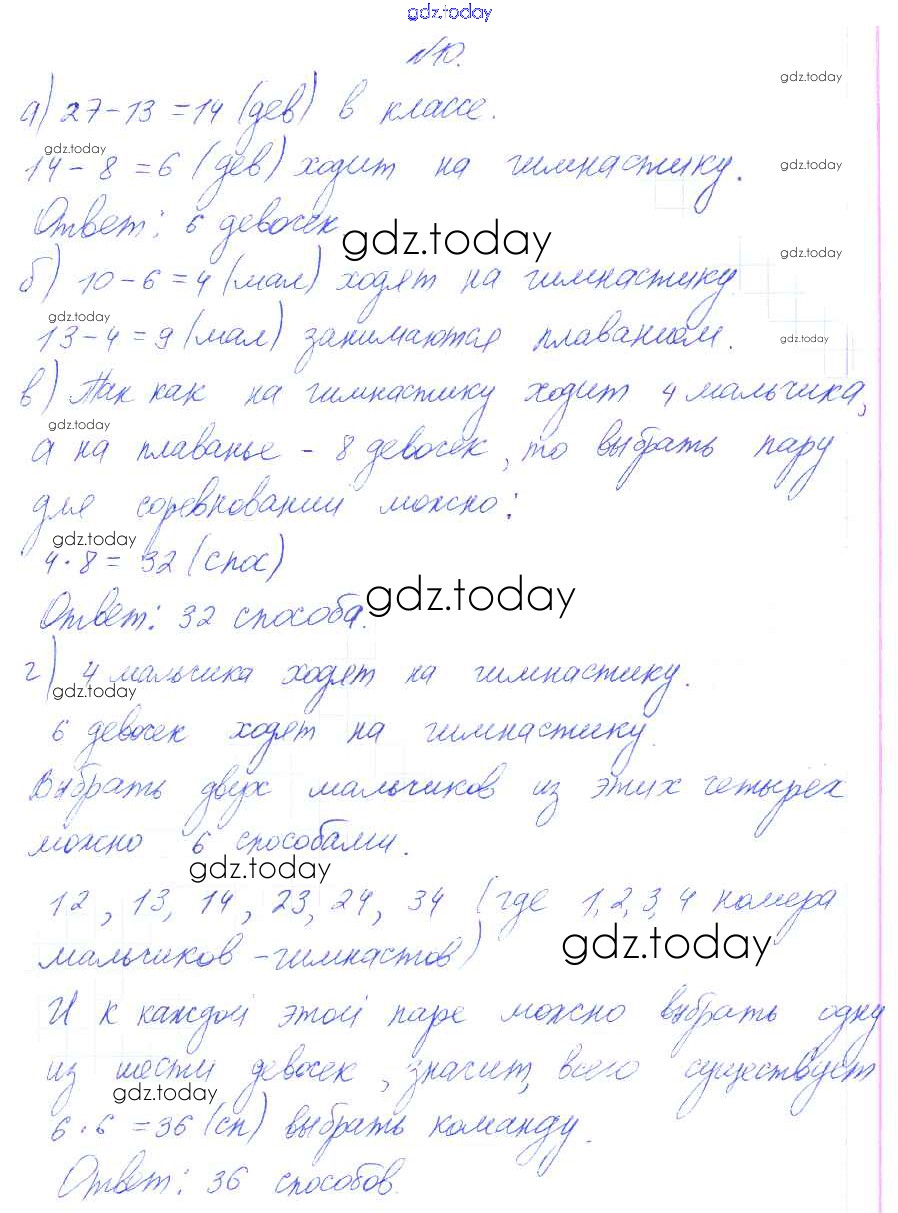 gdz.today
№10.
gdz.today
а) 27-13 = 14 (дев) в классе.
gdz.today
gdz.today
14 - 8 = 6 (дев) ходит на гимнастику.
Ответ: 6 девочек
gdz.today
gdz.today
б) 10 - 6 = 4 (мал) ходят на гимнастику
gdz.today
gdz.today
13 - 4 = 9 (мал) занимаются плаванием.
в) Так как на гимнастику ходит 4 мальчика,
gdz.today
а на плаванье - 8 девочек, то выбрать пару
для соревновании можно:
gdz.today
4 · 8 = 32 (спос)
gdz.today
Ответ: 32 способа.
г) 4 мальчика ходят на гимнастику.
gdz.today
6 девочек ходят на гимнастику.
Выбрать двух мальчиков из этих четырёх
можно 6 способами.
gdz.today
12, 13, 14, 23, 24, 34 (где 1, 2, 3, 4 номера
мальчиков - гимнастов)
gdz.today
И к каждой этой паре можно выбрать одну
из шести девочек, значит, всего существует
gdz.today
6 · 6 = 36 (сп) выбрать команду.
Ответ: 36 способов.